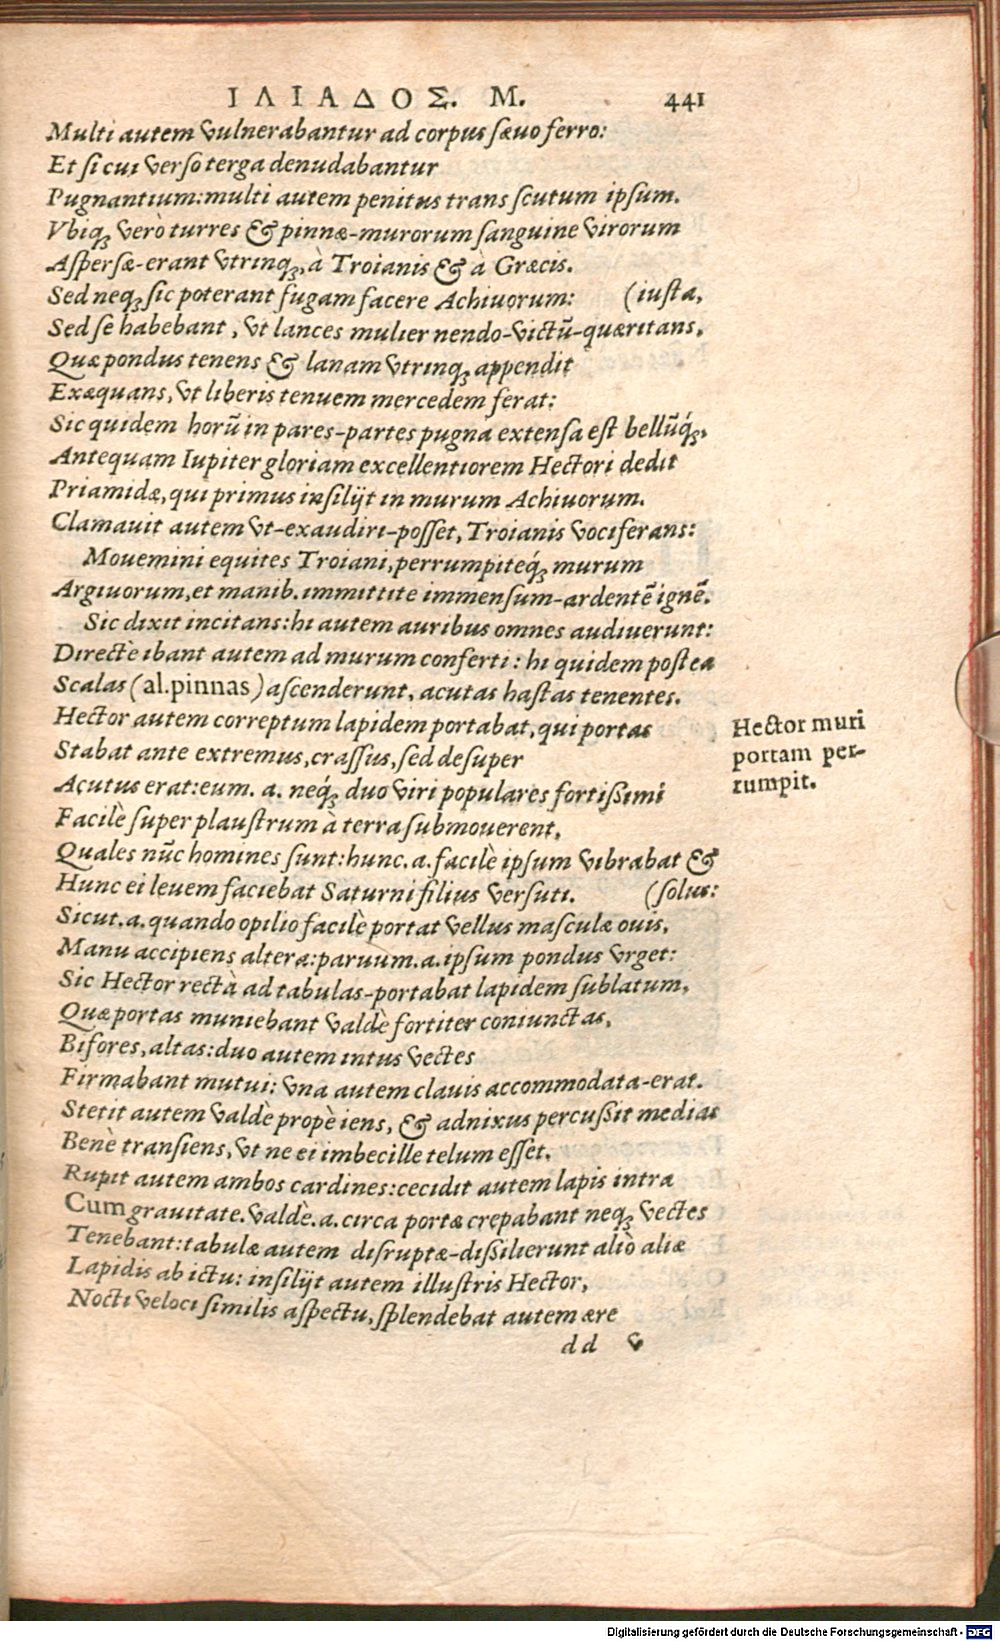 ΙΛΙΑΔΟΣ. Μ. 441
Multi autem vulnerabantur ad corpus sæuo ferro:
Et si cui verso terga denudabantur
Pugnantium: multi autem penitus trans scutum ipsum.
Vbiq; verò turres & pinnæ-murorum sanguine virorum
Aspersæ-erant vtrinq;, à Troianis & à Græcis.
Sed neq; sic poterant fugam facere Achiuorum: (iusta,
Sed se habebant, vt lances mulier nendo-victū-quæritans,
Quæ pondus tenens & lanam vtrinq; appendit
Exæquans, vt liberis tenuem mercedem ferat:
Sic quidem horū in pares-partes pugna extensa est bellūq́;,
Antequam Iupiter gloriam excellentiorem Hectori dedit
Priamidæ, qui primus insilijt in murum Achiuorum.
Clamauit autem vt-exaudiri-posset, Troianis vociferans:
Mouemini equites Troiani, perrumpiteq́; murum
Argiuorum, et manib. immittite immensum-ardentē ignē.
Sic dixit incitans: hi autem auribus omnes audiuerunt:
Directè ibant autem ad murum conferti: hi quidem postea
Scalas (al. pinnas) ascenderunt, acutas hastas tenentes.
Hector autem correptum lapidem portabat, qui portas
Stabat ante extremus, crassus, sed desuper
Acutus erat: eum. a. neq́; duo viri populares fortissimi
Facilè super plaustrum à terra submouerent,
Quales nūc homines sunt: hunc. a. facilè ipsum vibrabat &
Hunc ei leuem faciebat Saturni filius versuti. (solus:
Sicut. a. quando opilio facilè portat vellus masculæ ouis,
Manu accipiens altera: paruum. a. ipsum pondus vrget:
Sic Hector rectà ad tabulas-portabat lapidem sublatum,
Quæ portas muniebant valdè fortiter coniunctas,
Bifores, altas: duo autem intus vectes
Firmabant mutui: vna autem clauis accommodata-erat.
Stetit autem valdè propè iens, & adnixus percussit medias
Benè transiens, vt ne ei imbecille telum esset.
Rupit autem ambos cardines: cecidit autem lapis intra
Cum grauitate. valdè. a. circa portæ crepabant neq; vectes
Tenebant: tabulæ autem disruptæ-dissilierunt aliò aliæ
Lapidis ab ictu: insilijt autem illustris Hector,
Nocti veloci similis aspectu, splendebat autem ære
dd v
Hector muri
portam per-
rumpit.
Digitalisierung gefördert durch die Deutsche Forschungsgemeinschaft - DFG